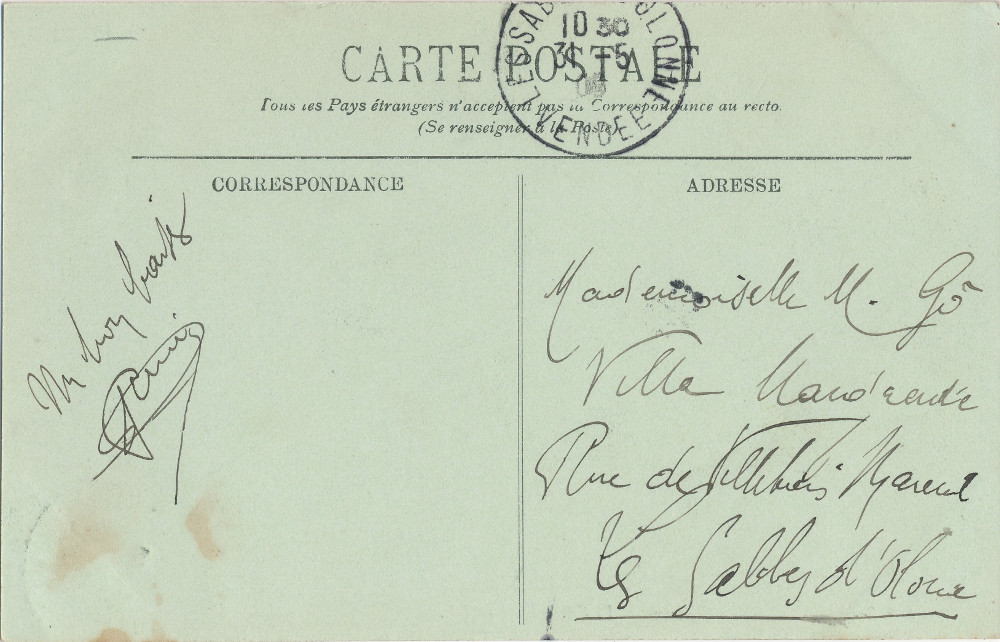 LES SABLES D'OLONNE
10 30
31 -5
VENDÉE
CARTE POSTALE
Tous les Pays étrangers n'acceptent pas la Correspondance au recto.
(Se renseigner à la Poste)
CORRESPONDANCE
ADRESSE
Un bon
Mademoiselle M. Gô
Villa
Rue de
Les Sables d'Olonne